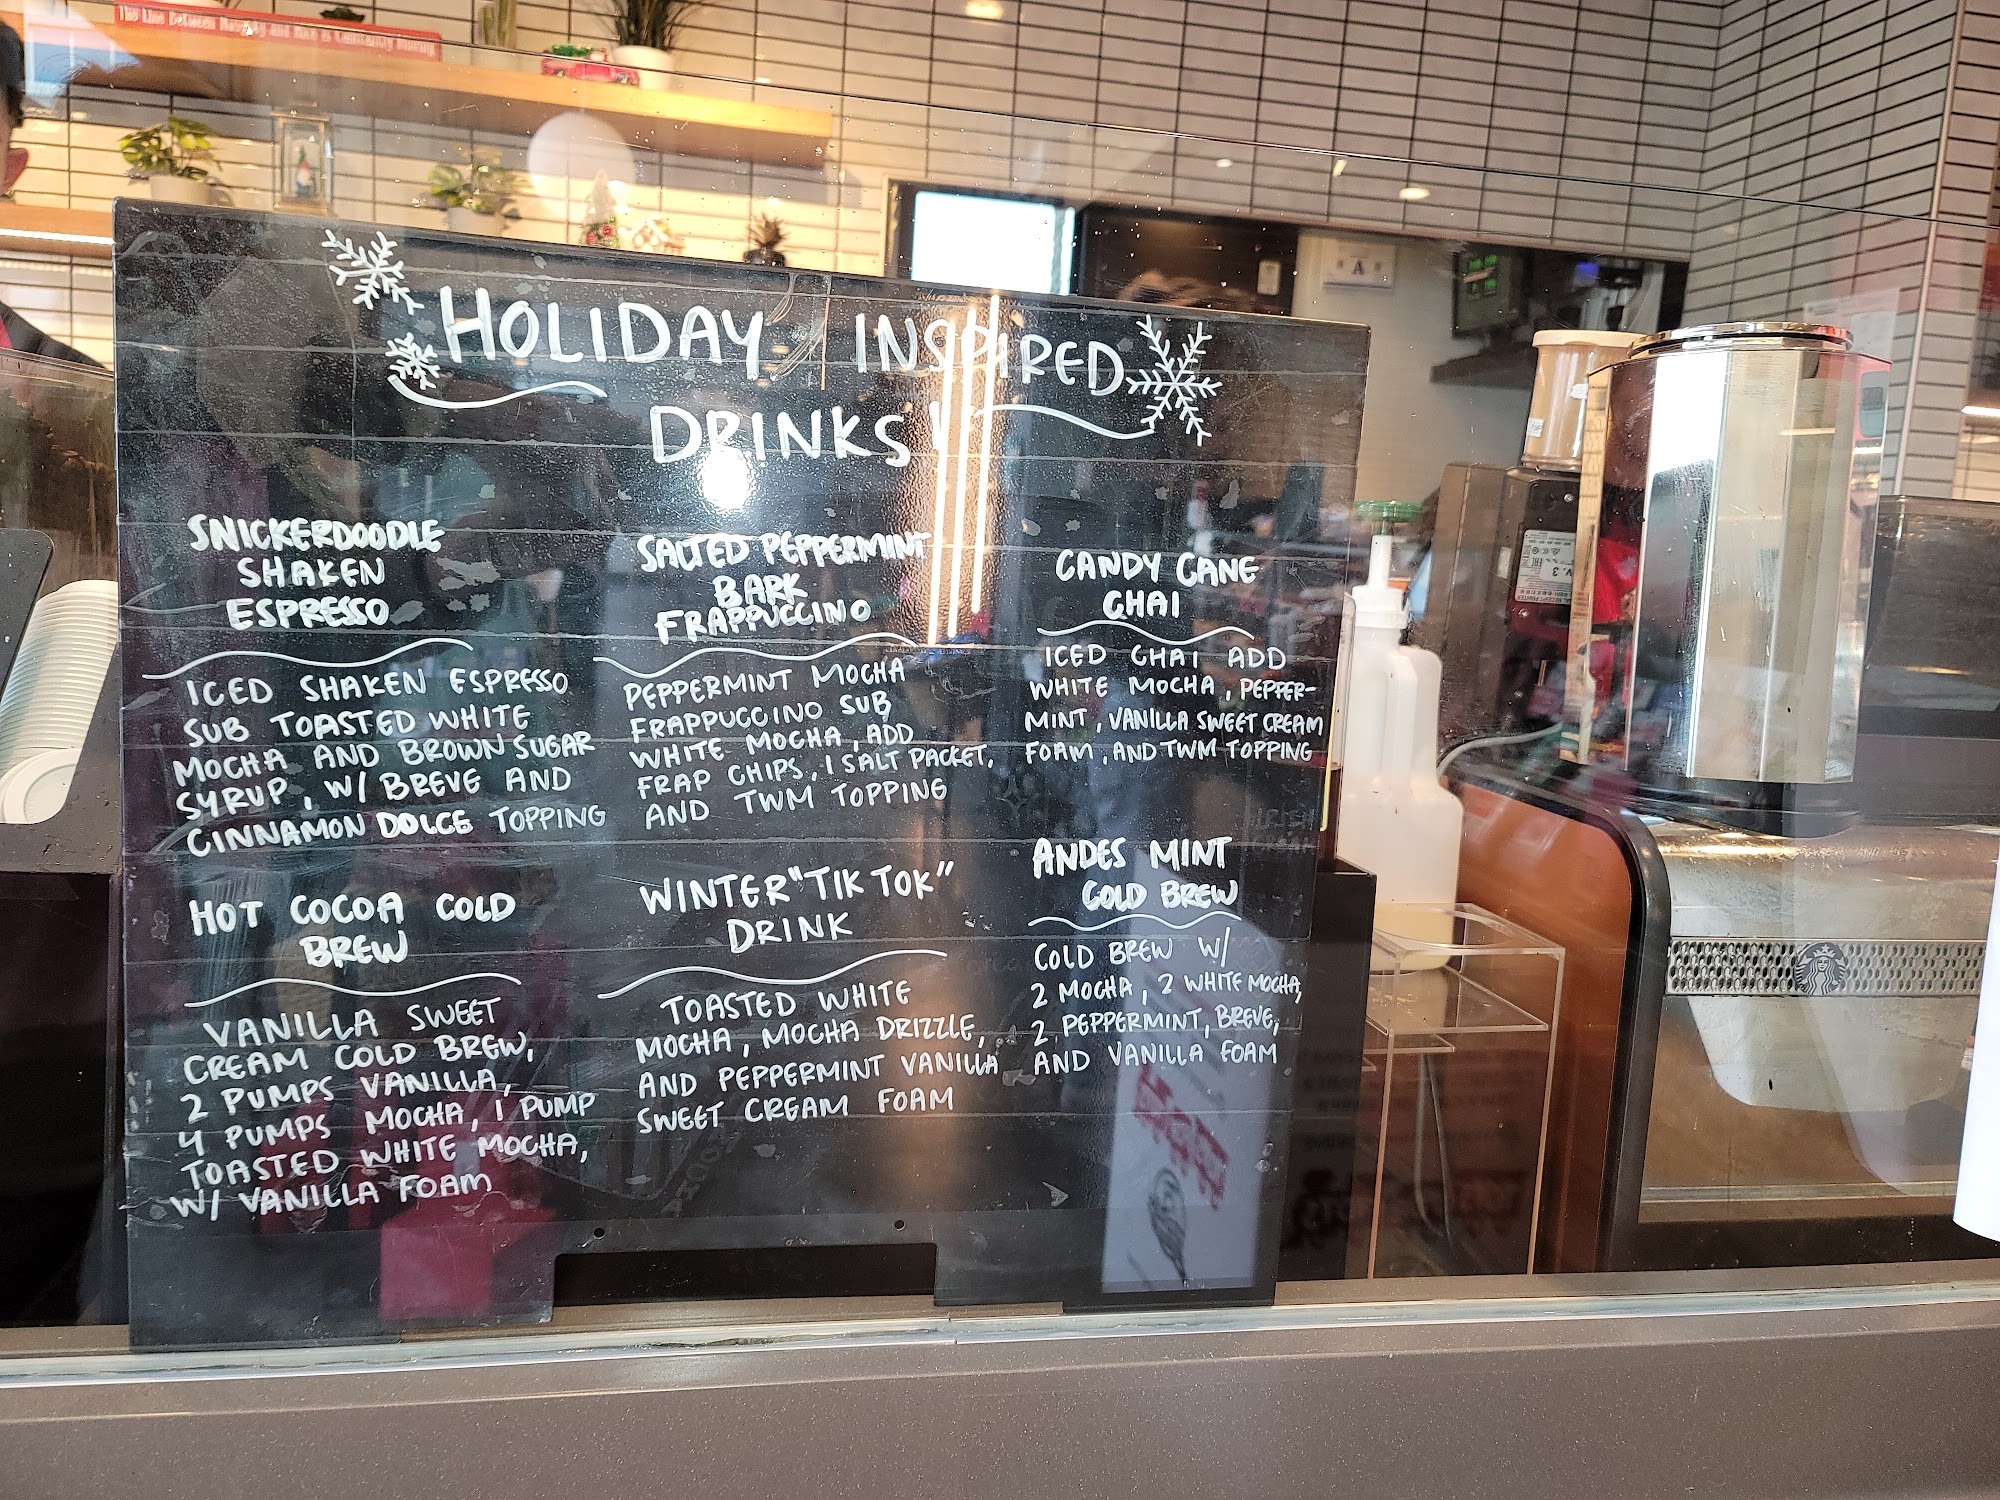 The Line Between Naughty and Nice is Constantly Moving
A
HOLIDAY INSPIRED
DRINKS!
SNICKERDOODLE
SHAKEN
ESPRESSO
ICED SHAKEN ESPRESSO
SUB TOASTED WHITE
MOCHA AND BROWN SUGAR
SYRUP, W/ BREVE AND
CINNAMON DOLCE TOPPING
SALTED PEPPERMINT
BARK
FRAPPUCCINO
PEPPERMINT MOCHA
FRAPPUCCINO SUB
WHITE MOCHA, ADD
FRAP CHIPS, 1 SALT PACKET,
AND TWM TOPPING
CANDY CANE
CHAI
ICED CHAI ADD
WHITE MOCHA, PEPPER-
MINT, VANILLA SWEET CREAM
FOAM, AND TWM TOPPING
HOT COCOA COLD
BREW
VANILLA SWEET
CREAM COLD BREW,
2 PUMPS VANILLA,
4 PUMPS MOCHA, 1 PUMP
TOASTED WHITE MOCHA,
W/ VANILLA FOAM
WINTER "TIK TOK"
DRINK
TOASTED WHITE
MOCHA, MOCHA DRIZZLE,
AND PEPPERMINT VANILLA
SWEET CREAM FOAM
ANDES MINT
COLD BREW
COLD BREW W/
2 MOCHA, 2 WHITE MOCHA,
2 PEPPERMINT, BREVE,
AND VANILLA FOAM